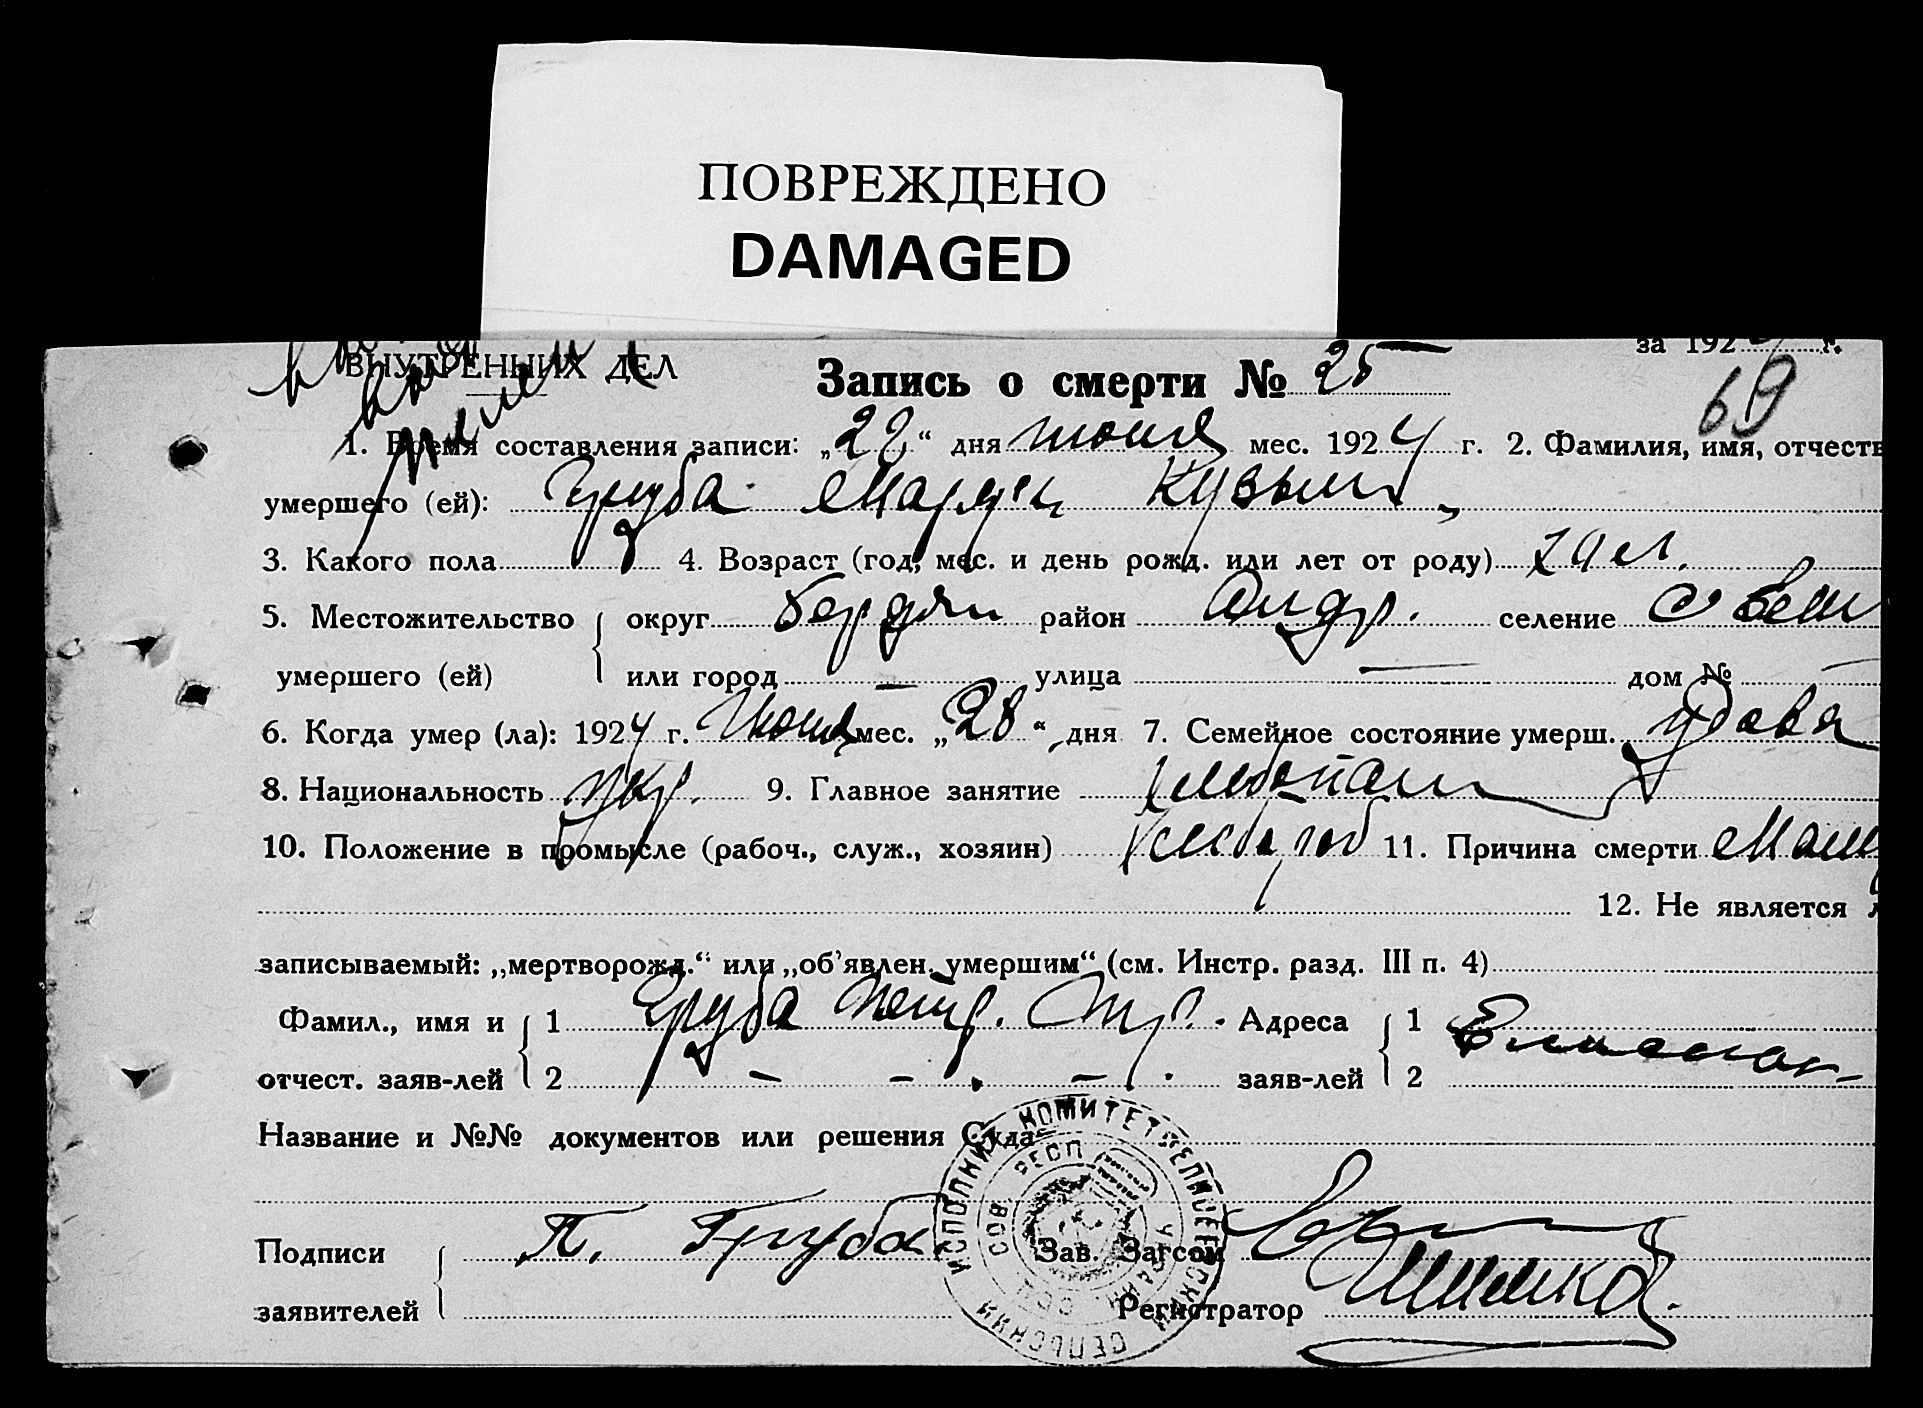 ПОВРЕЖДЕНО
DAMAGED
за 192 г.
ВНУТРЕННИХ ДЕЛ
Запись о смерти № 25
69
1. Время составления записи: „29“ дня июня мес. 1924 г. 2. Фамилия, имя, отчеств
умершего (ей): Груба Марфы Кузьм.
3. Какого пола 4. Возраст (год, мес. и день рожд. или лет от роду)
5. Местожительство округ Бердян район Андр. селение
умершего (ей) или город — улица — дом № —
6. Когда умер (ла): 1924 г. Июня мес. „28“ дня 7. Семейное состояние умерш. вдова
8. Национальность укр. 9. Главное занятие хлебопаш
10. Положение в промысле (рабоч., служ., хозяин) хлебороб 11. Причина смерти
12. Не является л
записываемый: „мертворожд.“ или „об'явлен. умершим“ (см. Инстр. разд. III п. 4)
Фамил., имя и 1 Груба Петр. Адреса 1
отчест. заяв-лей 2 — — — заяв-лей 2
Название и №№ документов или решения Суда
ИСПОЛНИТ. КОМИТЕТ ЕЛИСЕЕВСКИЙ СЕЛЬСКИЙ
Подписи П. Груба Зав. Загсом
заявителей Регистратор